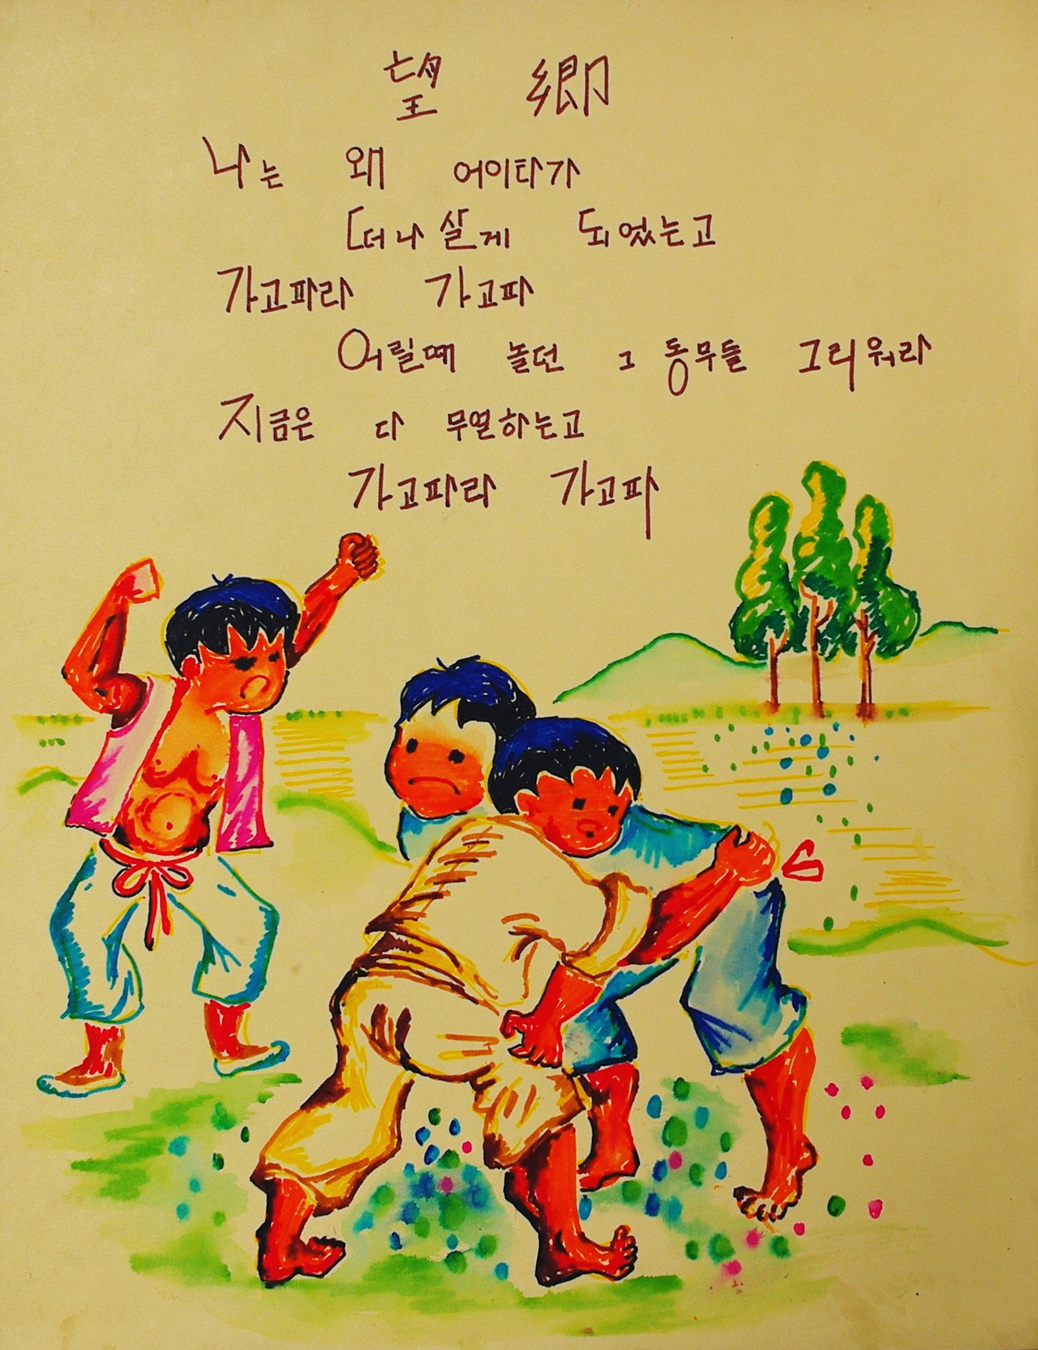 望 鄕
나는 왜 어이타가
떠나 살게 되었는고
가고파라 가고파
어릴때 놀던 그 동무들 그리워라
지금은 다 무얼하는고
가고파라 가고파